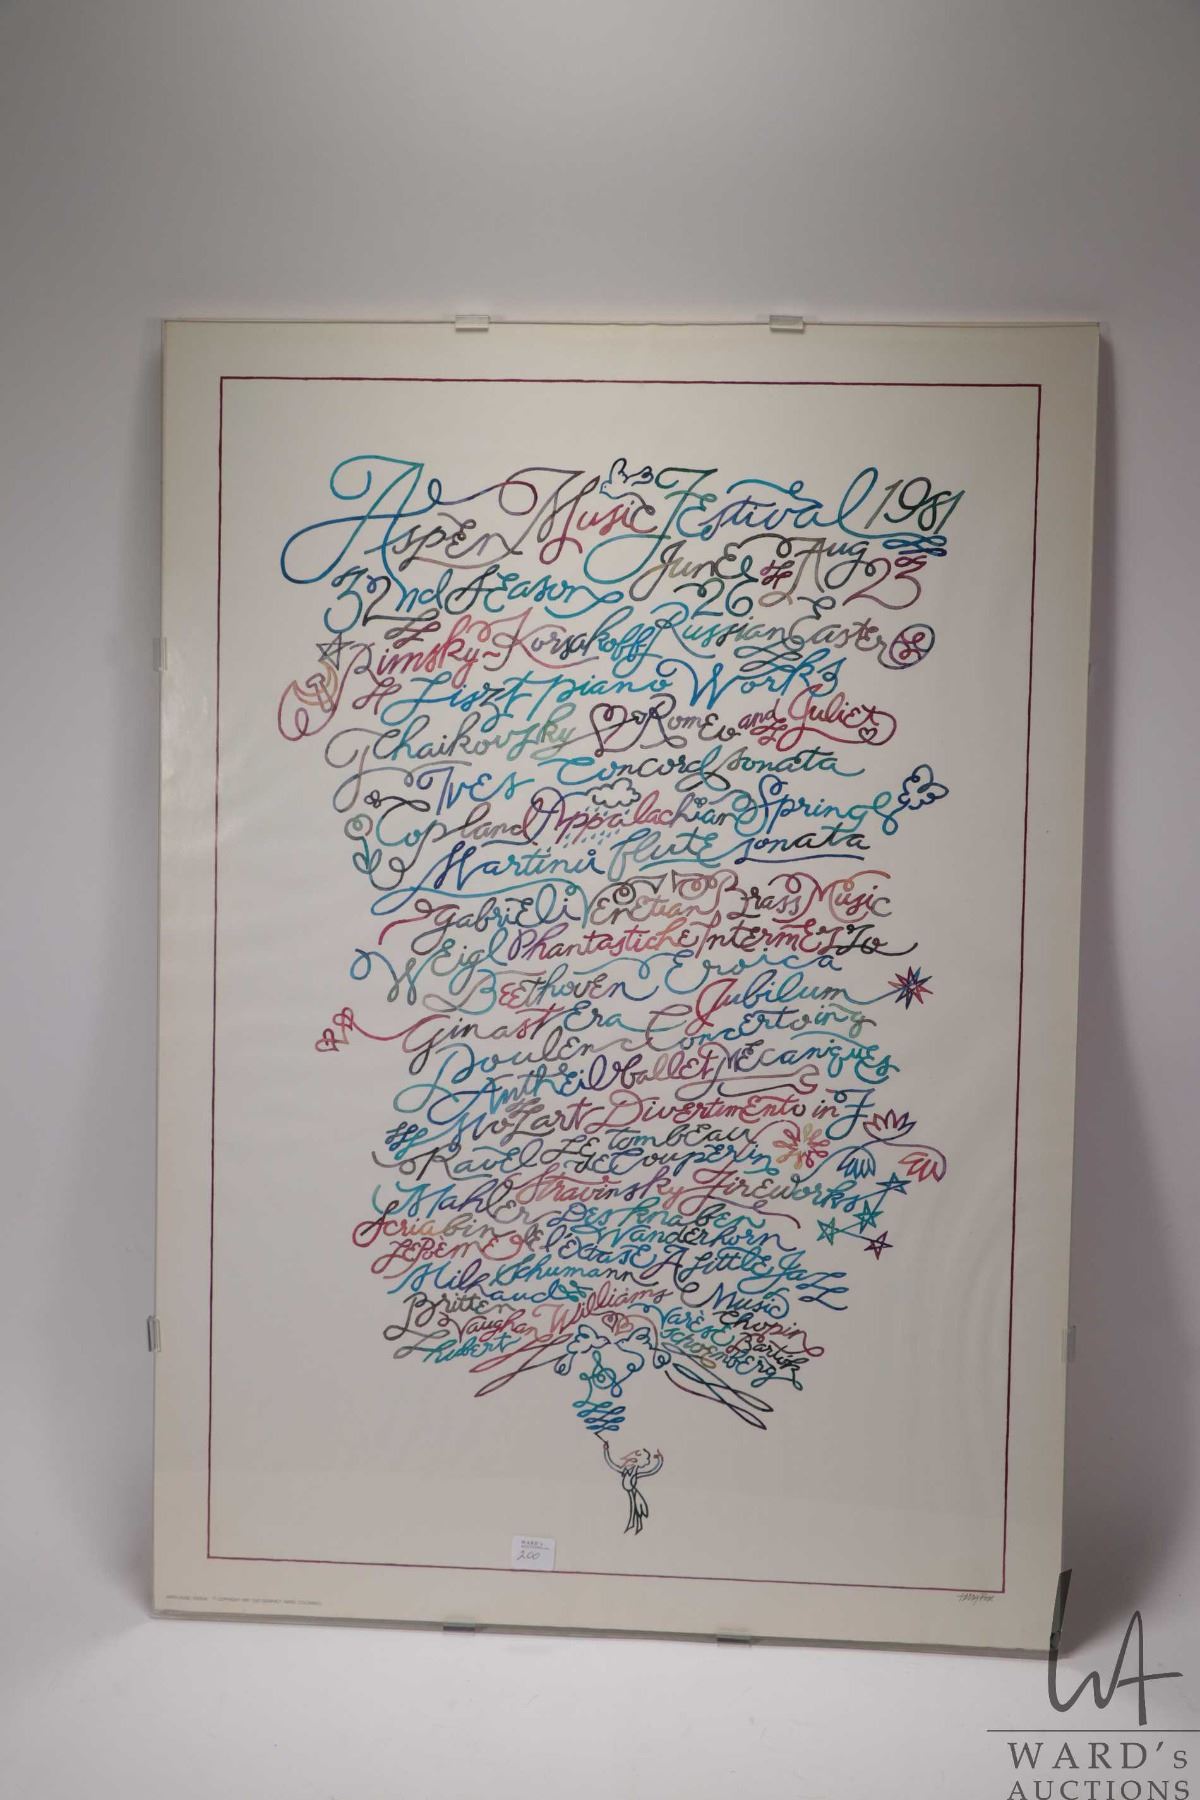 Aspen Music Festival 1981
32nd Season June 26 Aug 23
Rimsky-Korsakoff Russian Easter
Liszt piano Works
Tchaikovsky Romeo and Juliet
Ives Concord sonata
Copland Appalachian Spring
Martinů flute sonata
Gabrieli Venetian Brass Music
Weigl Phantastiche Intermezzo
Beethoven Eroica
Ginastera Jubilum
Poulenc Concerto in g
Antheil ballet Mécaniques
Mozart Divertimento in F
Ravel Le tombeau de Couperin
Stravinsky Fireworks
Mahler Des Knaben Wunderhorn
Scriabin Le Poème de l'Extase
Milhaud Schumann A Little Jazz Music
Britten Vaughan Williams Varèse Chopin
Schoenberg Bartók
WARD'S
200
WA
WARD's
AUCTIONS